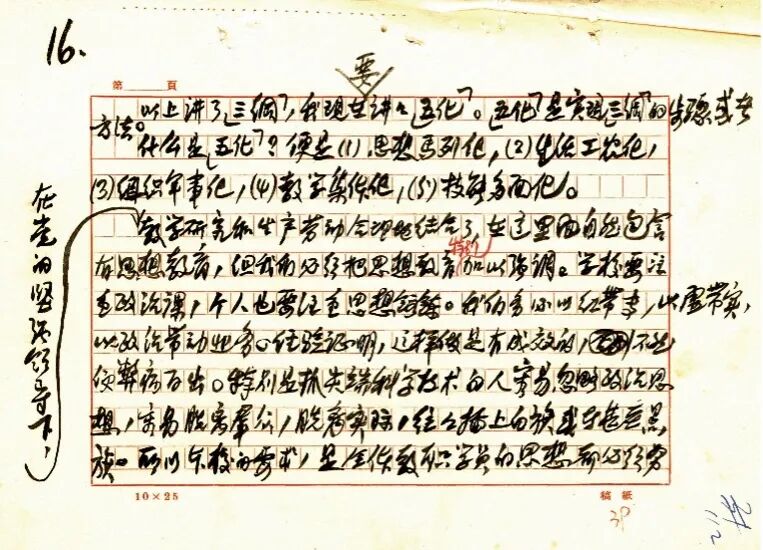 16.
第 頁
要
以上讲了「三纲」，我现在讲「五化」。「五化」是实现「三纲」的步骤或者
方法。
什么是「五化」？便是(1)思想马列化，(2)生活工农化，
(3)组织军事化，(4)教学集体化，(5)技能多面化。
在党的坚强领导下，
教学研究和生产劳动合理地结合了，在这里面自然包含
特别
有思想教育，但我们必须把思想教育加以强调。学校要注
重政治课，个人也要注重思想锻炼。我们要以红带专，以虚带实，
以政治带动业务。经验证明，这样做是有成效的，不然
便弊病百出。特别是抓尖端科学技术的人容易忽略政治思
想，容易脱离群众，脱离实际，往往插上白旗或者是黑
旗。所以本校的要求，是全体教职学员的思想都必须
10×25
稿紙